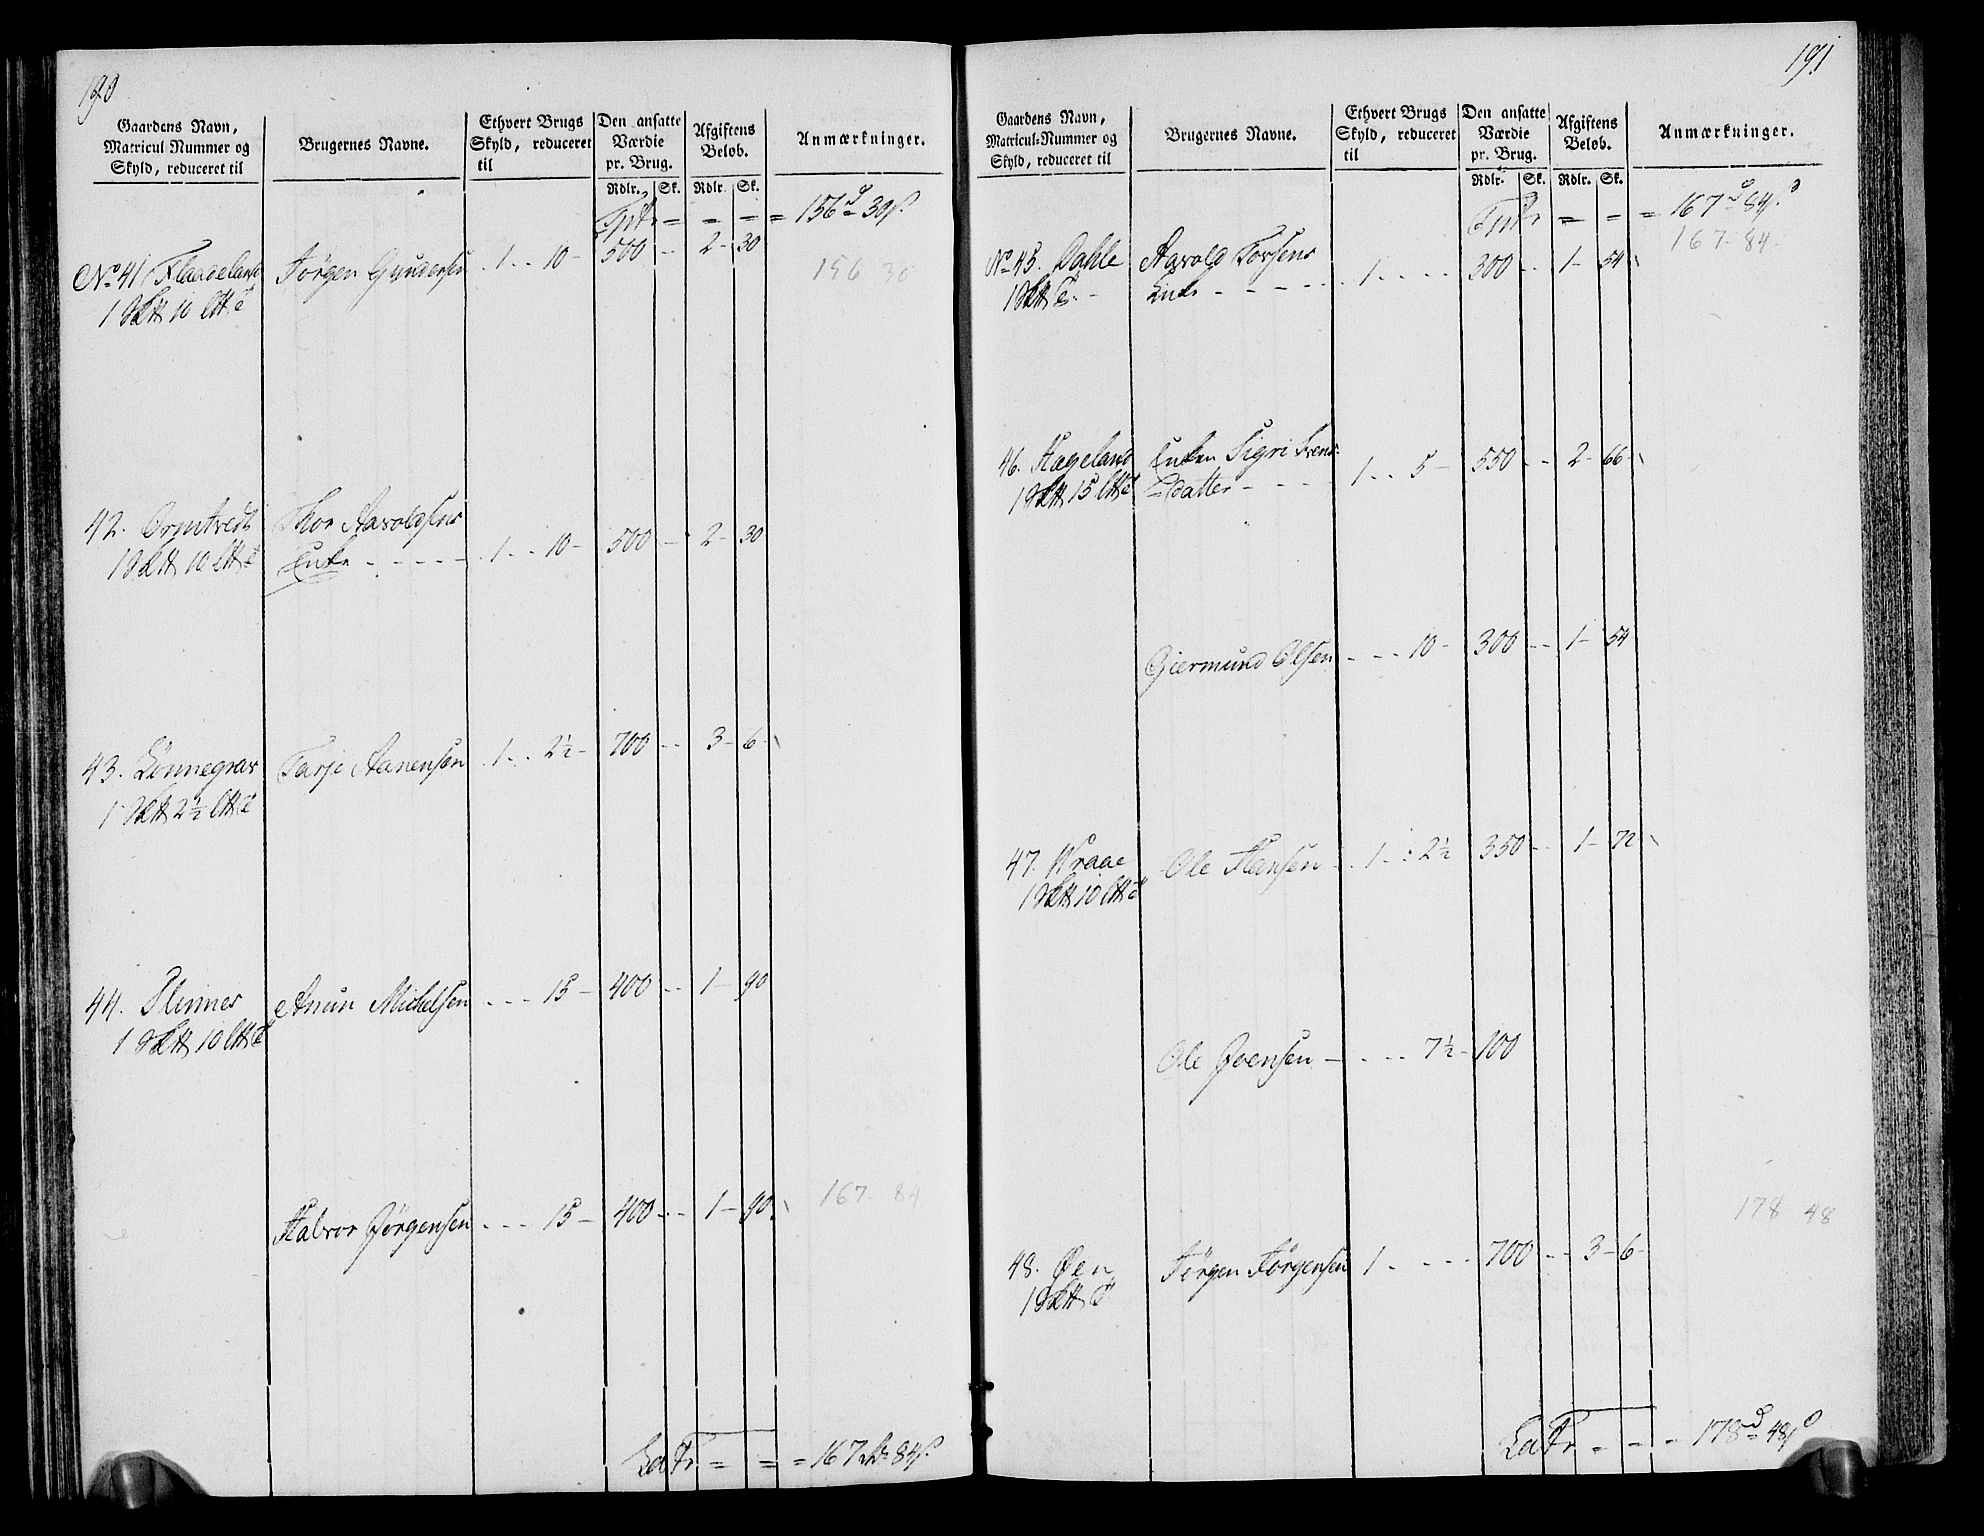 190
Gaardens Navn,
Matricul Nummer og
Skyld, reduceret til
Brugernes Navne.
Ethvert Brugs
Skyld, reduceret
til
Den ansatte
Værdie
pr. Brug.
Rdlr. Sk.
Afgiftens
Beløb.
Rdlr. Sk.
Anmærkninger.
Tpt = = = = 156 d 30 s.
No 41 Flaadeland Jørgen Gundersen 1 - - 10 - 500 - - 2 - 30
156 30
1 Sk℔ 10 L℔ T
42. Ormtvedt Thor Aavoldsens
1 Sk℔ 10 L℔ T Enke - - - - - 1 - - 10 - 500 - - 2 - 30
43. Lønnegrav Tarje Aanensen 1 - - 2½ - 700 - - 3 - 6 -
1 Sk℔ 2½ L℔ T
44. Slimnes Anun Michelsen - - - 15 - 400 - - 1 - 90
1 Sk℔ 10 L℔ T
167 - 84
Halvor Jørgensen - - - 15 - 400 - - 1 - 90
Lat = = = 167 Rd 84 s.
191
Gaardens Navn,
Matricul-Nummer og
Skyld, reduceret til
Brugernes Navne.
Ethvert Brugs
Skyld, reduceret
til
Den ansatte
Værdie
pr. Brug.
Rdlr. Sk.
Afgiftens
Beløb.
Rdlr. Sk.
Anmærkninger.
Tpt = = = 167 d 84 s
167 - 84 -
No 45. Dahle Aavold Torsens
1 Sk℔ T. - Enke - - - - - 1 - - - - 300 - - 1 - 54
46. Hageland Enken Sigri Svens
1 Sk℔ 15 L℔ T Datter - - - - 1 - - 5 - 550 - - 2 - 66 -
Giermund Olsen - - - 10 - 300 - - 1 - 54
47. Wraae Ole Hansen - - 1 - - 2½ 350 - - 1 - 72
1 Sk℔ 10 L℔ T
Ole Joensen - - - - 7½ - 100
178 48
48. Øen Jørgen Jørgensen 1 - - - - 700 - - 3 - 6 -
1 Sk℔ T
Lat = - - 178 d 48 s